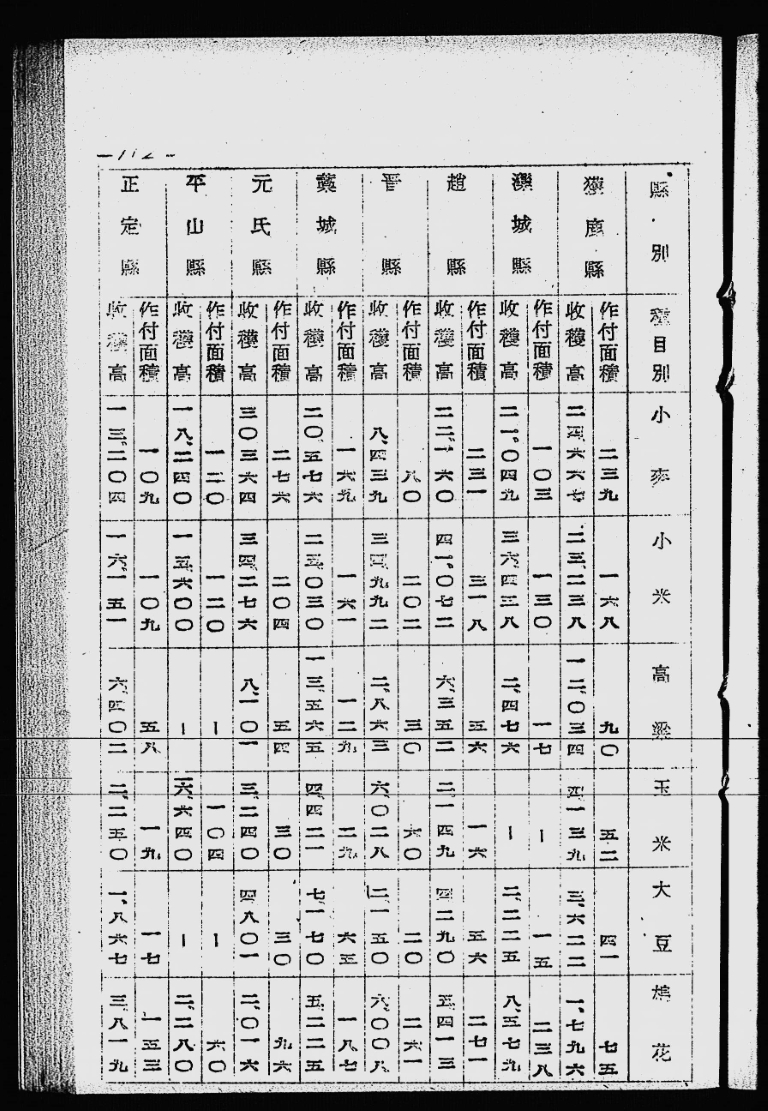 —112—
縣別 種目別 小麥 小米 高粱 玉米 大豆 棉花
獲鹿縣 作付面積 二三九 一六八 九〇 五二 四一 七五
收穫高 二四、六六七 二三、二三八 一二、〇三四 四一三九 三、六二二 一、七九六
欒城縣 作付面積 一〇三 一三〇 一七 ー 一五 二三八
收穫高 二一、〇四九 三六四三八 二、四七六 ー 二、二二五 八、五七九
趙縣 作付面積 二三一 三一八 五六 一六 五六 二七一
收穫高 二二、一六〇 四一、〇七二 六、三五二 二、一四九 四二九〇 五、四一三
晋縣 作付面積 八〇 二〇二 三〇 六〇 二〇 二六一
收穫高 八、四三九 三四、九九二 二、八六三 六、〇二八 二、一五〇 六、〇〇八
藁城縣 作付面積 一六九 一六一 一二九 二九 六五 一八七
收穫高 二〇、五七六 二三、〇三〇 一三、五六五 四四二一 七、一七〇 五、二二五
元氏縣 作付面積 二七六 二〇四 五四 三〇 三〇 九六
收穫高 三〇三六四 三四、二七六 八、一〇一 三、二四〇 四八〇一 二、〇一六
平山縣 作付面積 一二〇 一二〇 ー 一〇四 ー 六〇
收穫高 一八、二四〇 一五、六〇〇 ー 一六、六四〇 ー 二、二八〇
正定縣 作付面積 一〇九 一〇九 五八 一九 一七 一五三
收穫高 一三、二〇四 一六、一五一 六、四〇二 二、二五〇 一、八六七 三、八一九